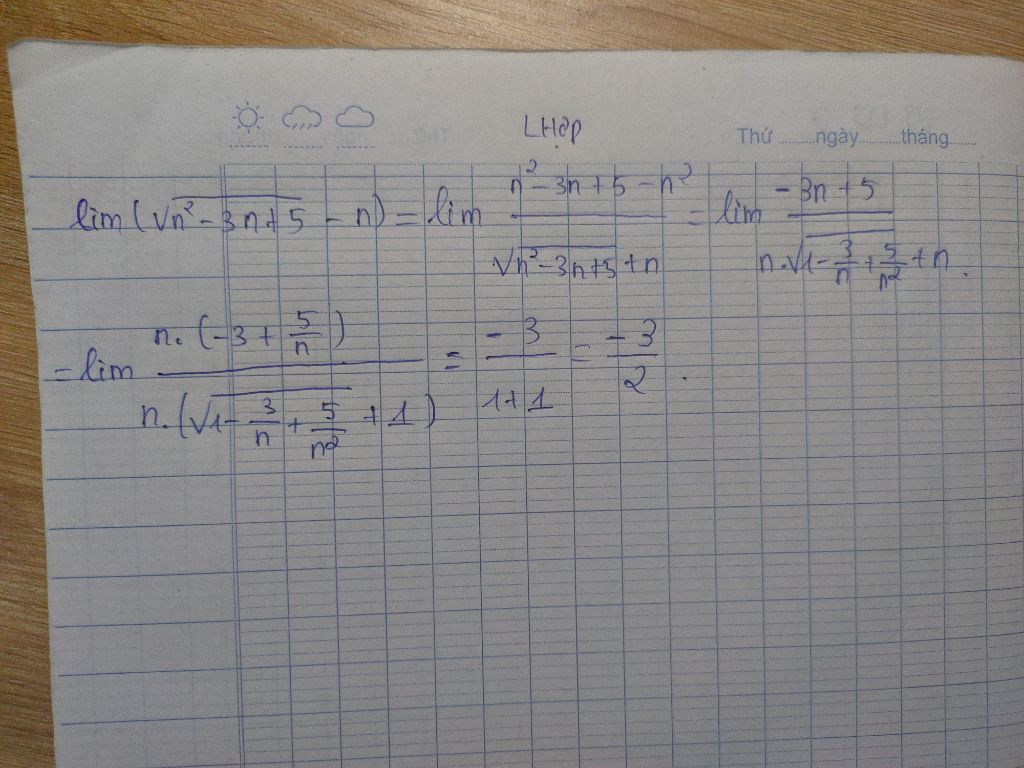 LHợp
Thứ ..........ngày..........tháng.......
lim (√(n² - 3n + 5) - n) = lim (n² - 3n + 5 - n²)/(√(n² - 3n + 5) + n) = lim (-3n + 5)/(n.√(1 - 3/n + 5/n²) + n).
= lim (n.(-3 + 5/n))/(n.(√(1 - 3/n + 5/n²) + 1)) = (-3)/(1 + 1) = (-3)/2.